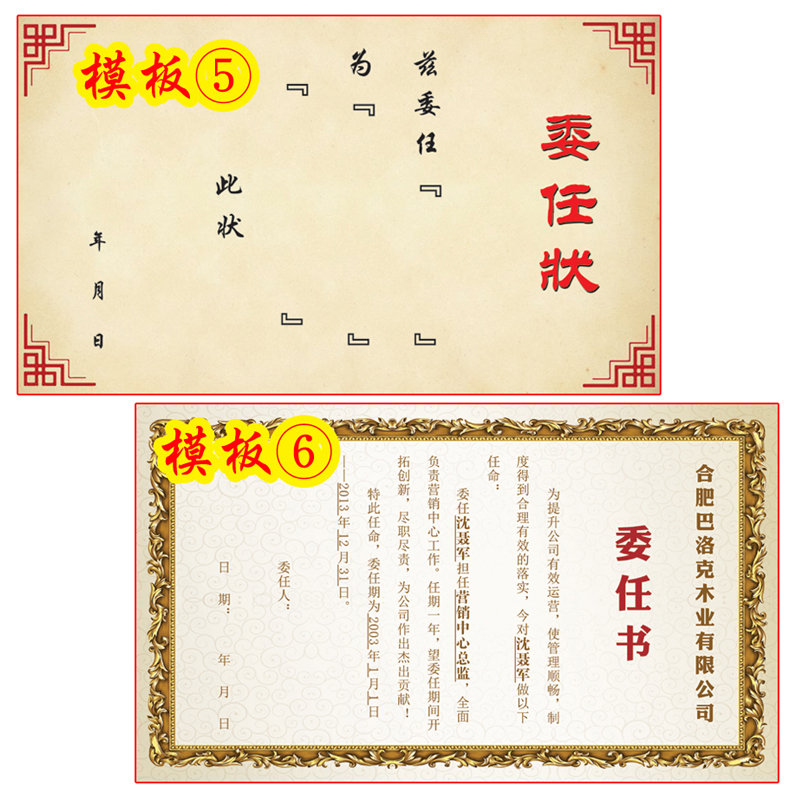 模板⑤
委任状
兹委任『 』
为『 』
『 』
此状
年 月 日
模板⑥
合肥巴洛克木业有限公司
委任书
为提升公司有效运营，使管理顺畅，制
度得到合理有效的落实，今对沈聂军做以下
任命：
委任沈聂军担任营销中心总监，全面
负责营销中心工作。任期一年，望委任期间开
拓创新，尽职尽责，为公司作出杰出贡献！
特此任命，委任期为2003年1月1日
——2013年12月31日。
委任人：
日期： 年 月 日